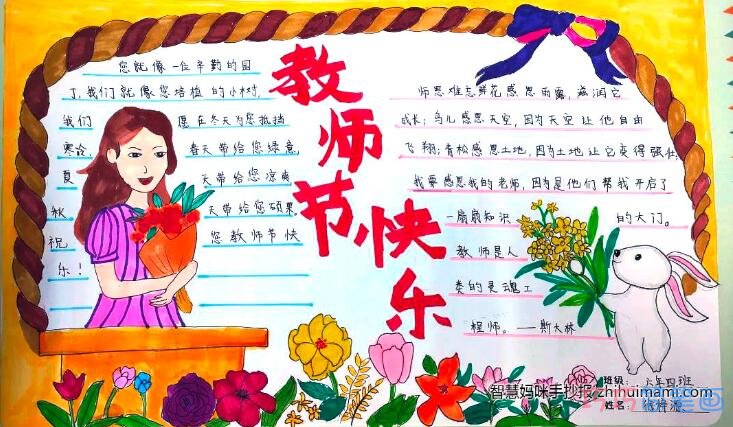 教师节快乐
您就像一位辛勤的园
丁,我们就像您培植的小树,
我们 愿在冬天为您抵挡
寒冷, 春天带给您绿意,
夏 天带给您凉爽
秋 天带给您硕果
祝 您教师节快
乐!
师恩难忘鲜花感恩雨露,滋润它
成长;鸟儿感恩天空,因为天空让他自由
飞翔;青松感恩土地,因为土地让它变得强壮;
我要感恩我的老师,因为是他们帮我开启了
一扇扇知识 的大门。
教师是人
类的灵魂工
程师。——斯大林
班级: 六年四班
姓名:
智慧妈咪手抄报 zhihuimami.com